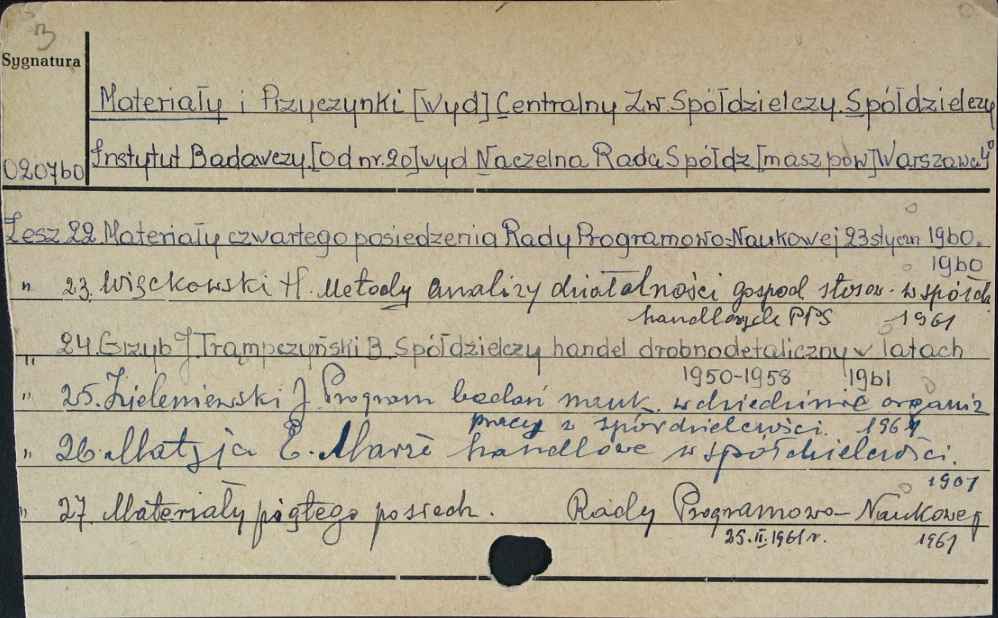 3
Sygnatura
Materiały i Przyczynki [wyd] Centralny Zw. Spółdzielczy. Spółdzielczy
020760 Instytut Badawczy. [Od nr. 20] wyd Naczelna Rada Spółdz [masz pow] Warszawa 4°
Zesz 22 Materiały czwartego posiedzenia Rady Programowo-Naukowej 23 styczn 1960.
1960
" 23. Więckowski H. Metody analizy działalności gospod stosow. w spółdz.
handlowych PPS 1961
" 24. Grzyb J. Trąmpczyński B. Spółdzielczy handel drobnodetaliczny w latach
1950-1958 1961
" 25. Zieleniewski J. Program badań nauk. w dziedzinie organiz
pracy z spółdzielczości. 1961
" 26. Matyja E. Marże handlowe w spółdzielczości.
1961
" 27. Materiały piątego posiedz. Rady Programowo-Naukowej
25.II.1961 r. 1961